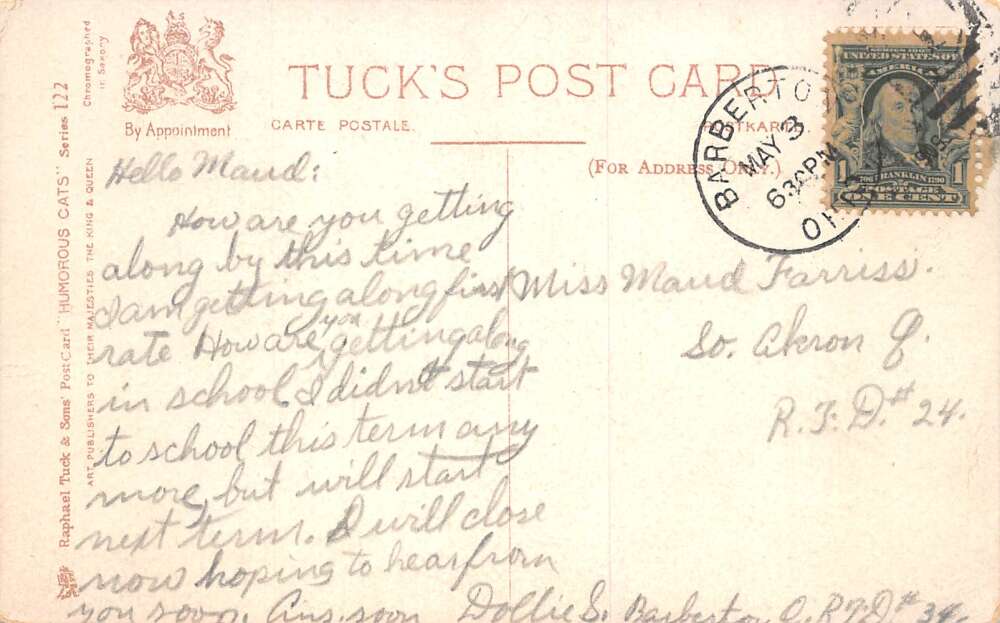 Raphael Tuck & Sons' Post Card "HUMOROUS CATS" Series 122
ART PUBLISHERS TO THEIR MAJESTIES THE KING & QUEEN
Chromographed in Saxony
By Appointment
TUCK'S POST CARD
CARTE POSTALE.
POSTKARTE.
(FOR ADDRESS ONLY.)
BARBERTON
MAY 3
630PM
OHIO
SERIES 1902
UNITED STATES OF
AMERICA
1 FRANKLIN 1790 1
POSTAGE
ONE CENT
Hello Maud:
How are you getting
along by this time
I am getting along first
rate. How are you getting along
in school I didn't start
to school this term any
more, but will start
next term. I will close
now hoping to hear from
you soon. Ans. soon Dollie S. Barberton, O. R.F.D.# 34.
Miss Maud Farriss.
So. Akron O.
R.F.D.# 24.